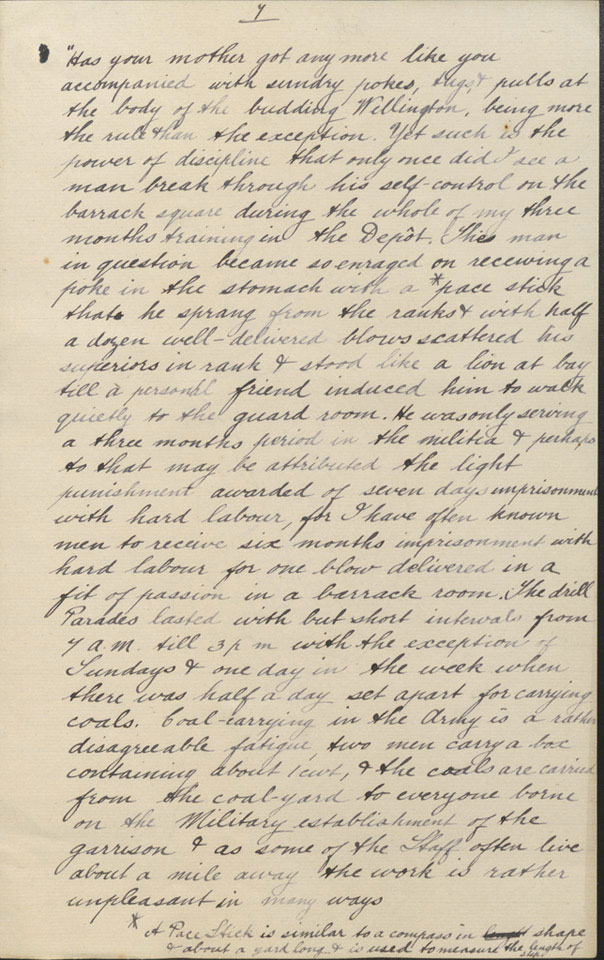 7
"Has your mother got any more like you
accompanied with sundry pokes, tugs & pulls at
the body of the budding Wellington, being more
the rule than the exception. Yet such is the
power of discipline that only once did I see a
man break through his self-control on the
barrack square during the whole of my three
months training in the Depôt. The man
in question became so enraged on receiving a
poke in the stomach with a *pace stick
that he sprang from the ranks & with half
a dozen well-delivered blows scattered his
superiors in rank & stood like a lion at bay
till a personal friend induced him to walk
quietly to the guard room. He was only serving
a three months period in the militia & perhaps
to that may be attributed the light
punishment awarded of seven days imprisonment
with hard labour, for I have often known
men to receive six months imprisonment with
hard labour for one blow delivered in a
fit of passion in a barrack room. The drill
Parades lasted with but short intervals from
7 a.m. till 3 p m with the exception of
Sundays & one day in the week when
there was half a day set apart for carrying
coals. Coal-carrying in the Army is a rather
disagreeable fatigue, two men carry a box
containing about 1 cwt, & the coals are carried
from the coal-yard to everyone borne
on the Military establishment of the
garrison & as some of the Staff often live
about a mile away the work is rather
unpleasant in many ways
* A Pace Stick is similar to a compass in shape
& about a yard long & is used to measure the length of
step.